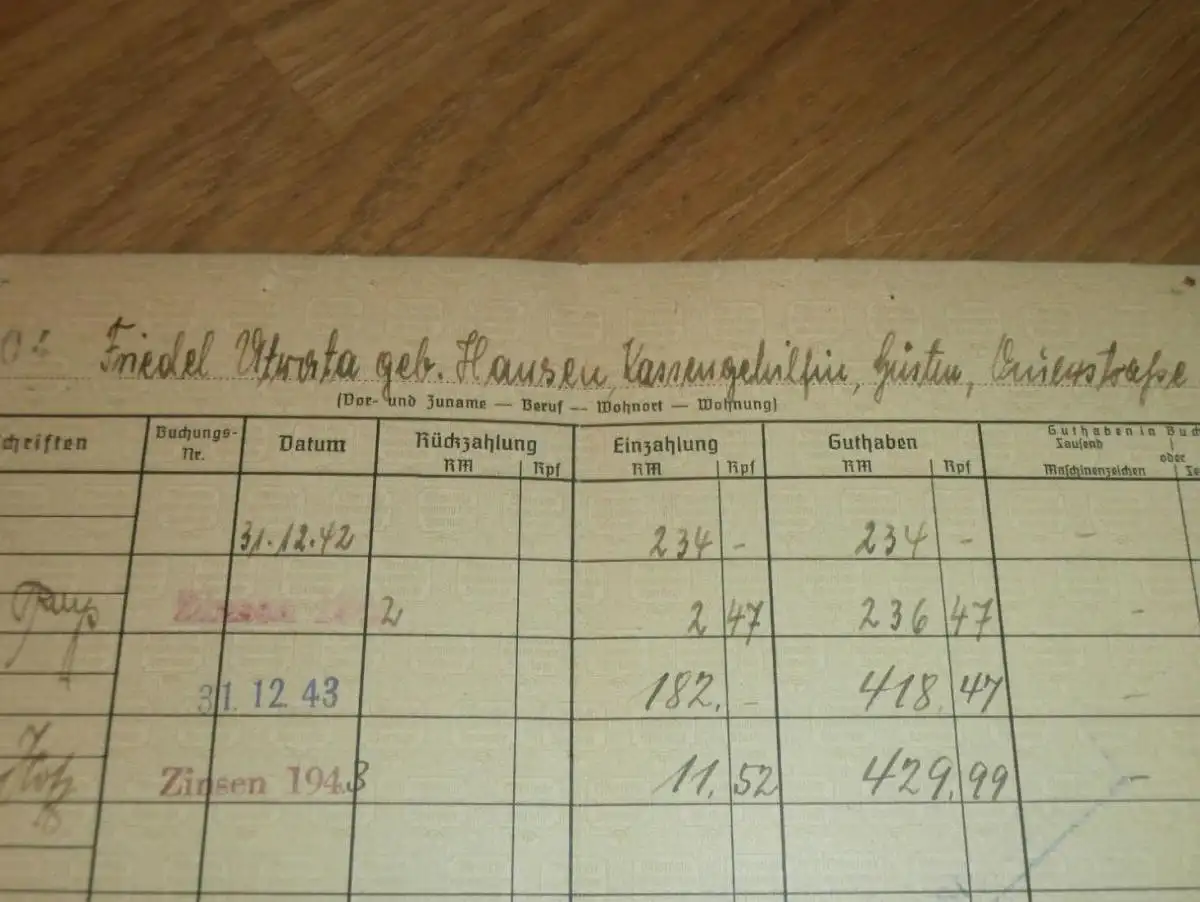 Friedel Utrata geb. Hansen, Kassengehilfin, Güsten,
(Vor- und Zuname — Beruf — Wohnort — Wohnung)
chriften Buchungs-Nr. Datum Rückzahlung RM Rpf Einzahlung RM Rpf Guthaben RM Rpf Guthaben in Buch Tausend oder Maschinenzeichen
31.12.42 234 - 234 - -
Zinsen 2 2 47 236 47 -
31.12.43 182. - 418.47 -
Zinsen 1943 11.52 429.99 -